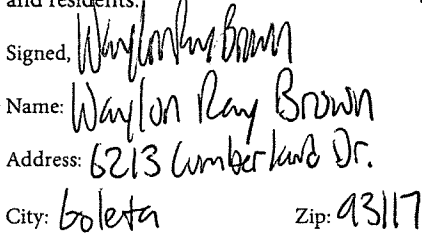 and residents.
Signed, Waylon Ray Brown
Name: Waylon Ray Brown
Address: 6213 Cumberland Dr.
City: Goleta Zip: 93117